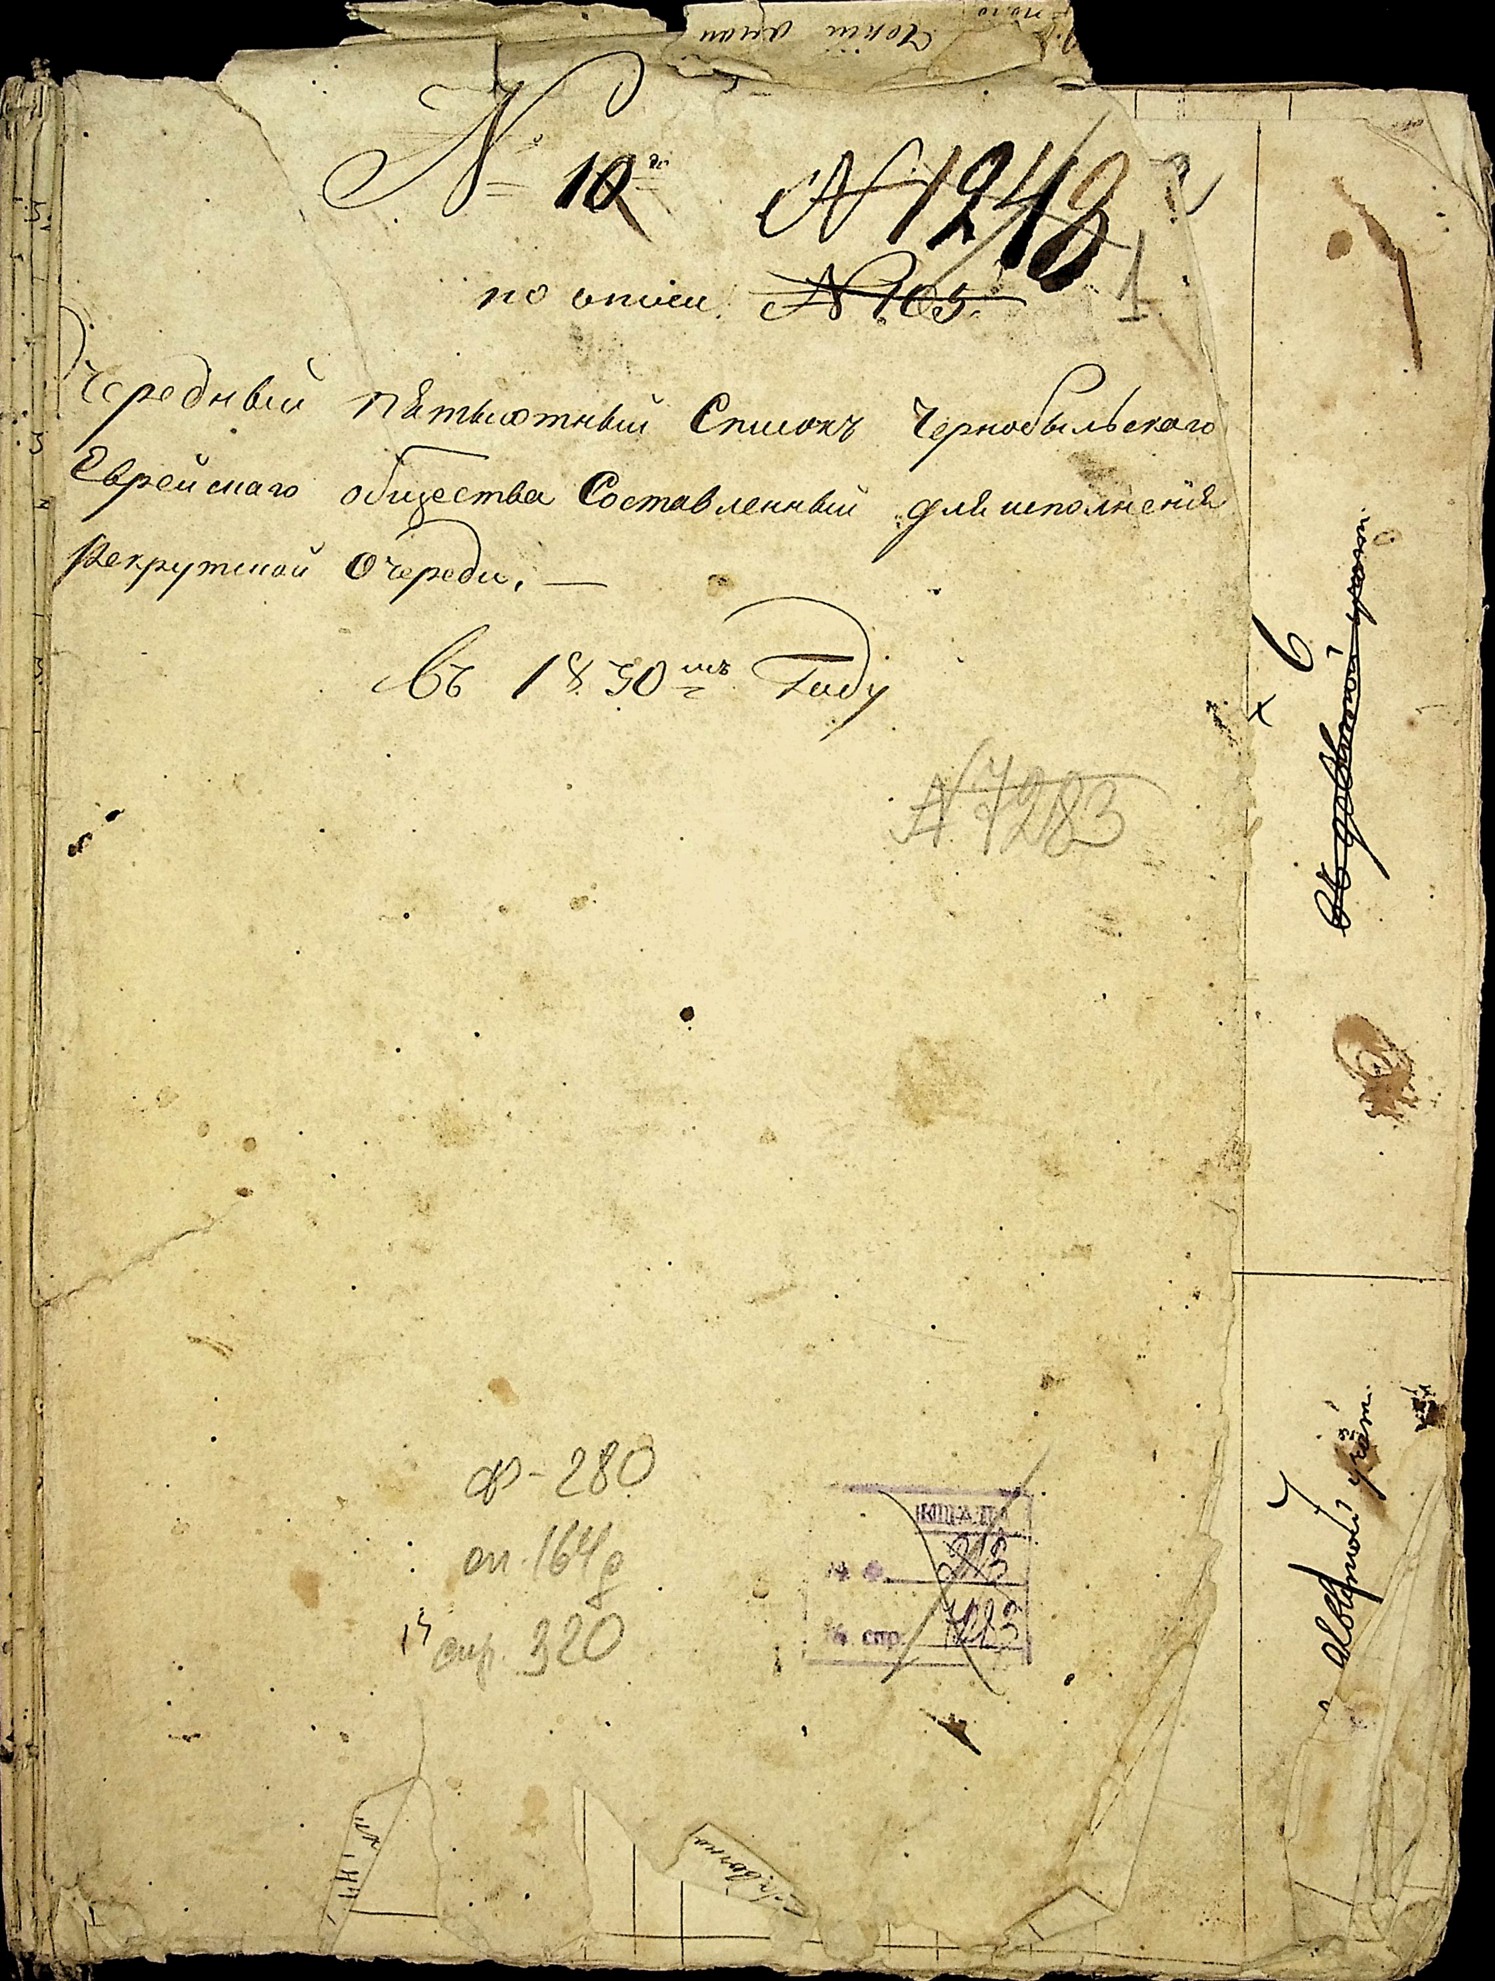 № 10й № 1248
по описи № 105.
1
Чередный пятилѣтный Списокъ Чернобыльскаго
Еврейскаго общества Составленный для исполненія
Рекрутской Очереди. —
Въ 1830мъ Году
№ 7283
6
х
7
ф-280
оп. 164
спр. 320
№ ф. 213
№ спр. 7283